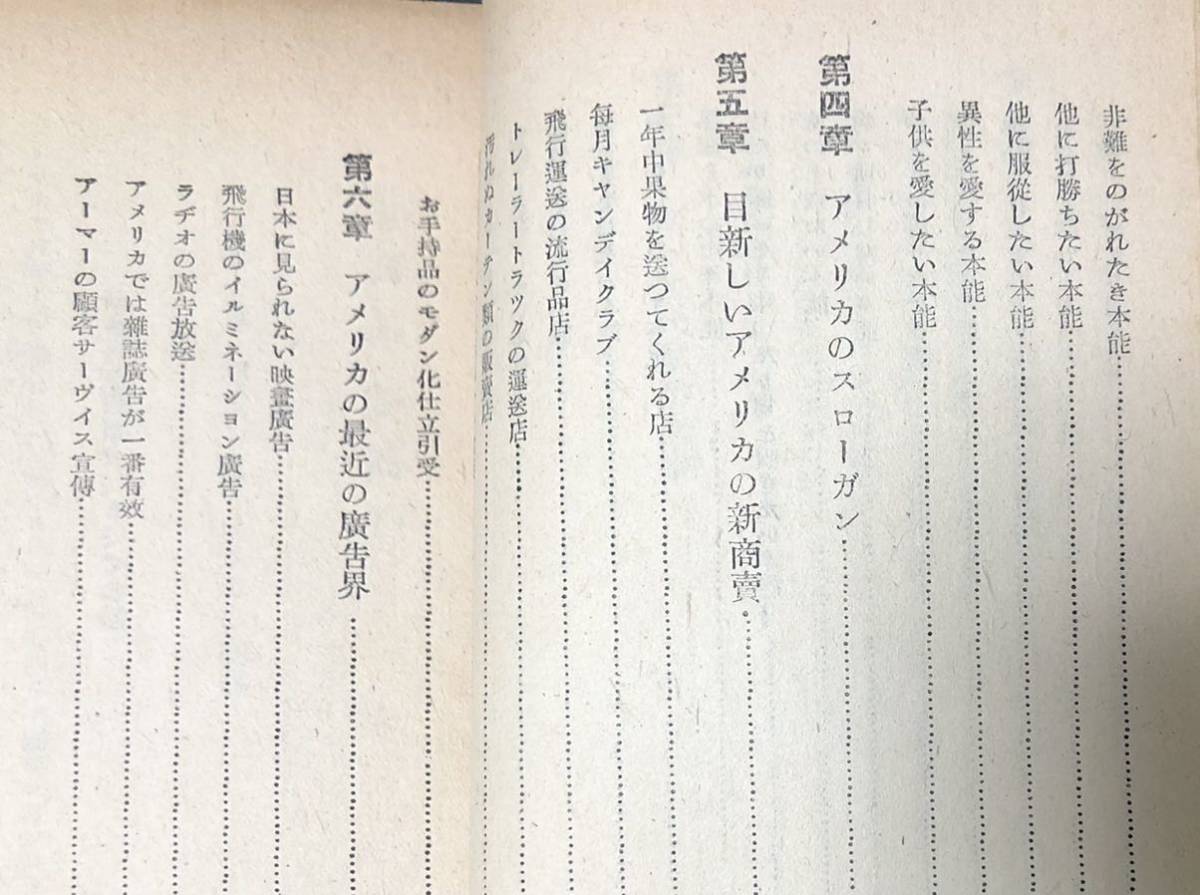 非難をのがれたき本能
他に打勝ちたい本能
他に服從したい本能
異性を愛する本能
子供を愛したい本能
第四章 アメリカのスローガン
第五章 目新しいアメリカの新商賣
一年中果物を送つてくれる店
每月キャンデイクラブ
飛行運送の流行品店
トレーラートラツクの運送店
汚れぬカーテン類の販賣店
お手持品のモダン化仕立引受
第六章 アメリカの最近の廣告界
日本に見られない映畫廣告
飛行機のイルミネーション廣告
ラヂオの廣告放送
アメリカでは雜誌廣告が一番有效
アーマーの顧客サーヴイス宣傳